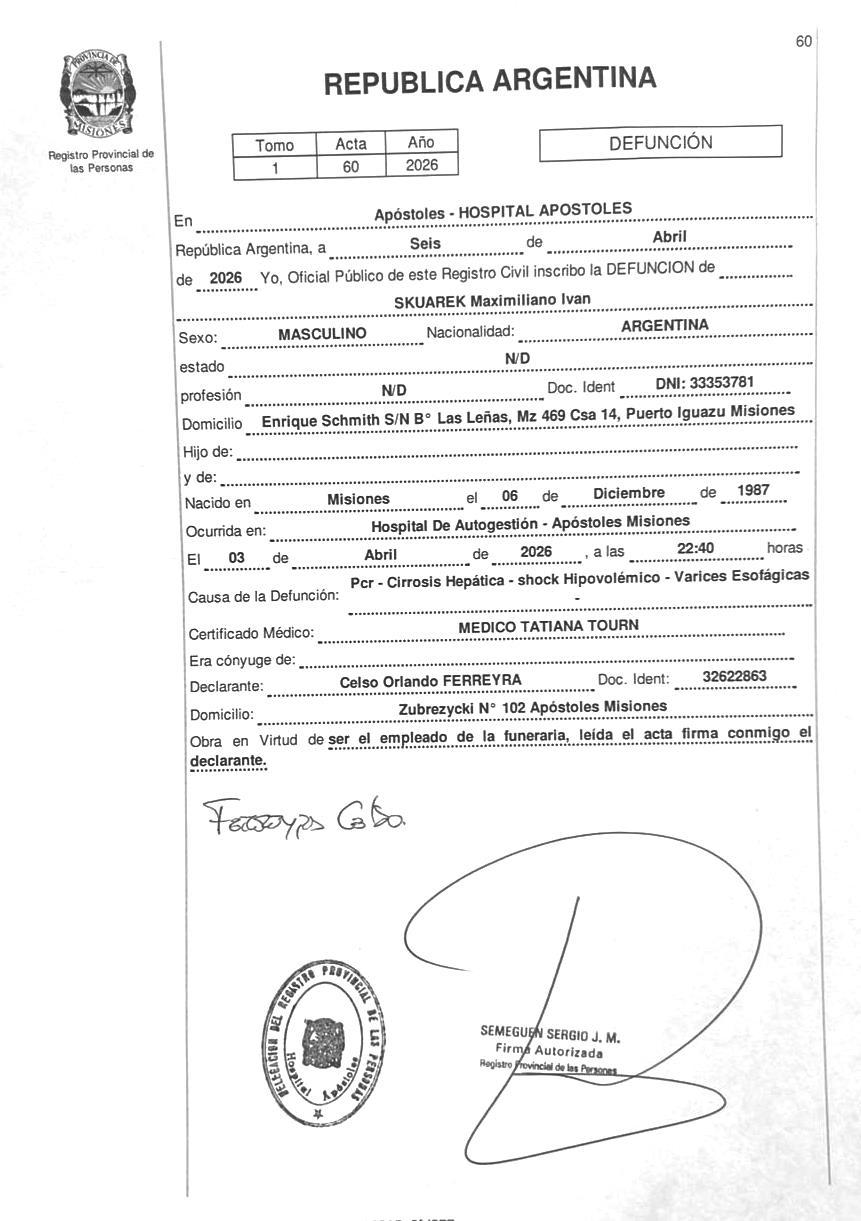 60
PROVINCIA DE MISIONES
Registro Provincial de
las Personas
REPUBLICA ARGENTINA
Tomo Acta Año
1 60 2026
DEFUNCIÓN
En Apóstoles - HOSPITAL APOSTOLES
República Argentina, a Seis de Abril
de 2026 Yo, Oficial Público de este Registro Civil inscribo la DEFUNCION de
SKUAREK Maximiliano Ivan
Sexo: MASCULINO Nacionalidad: ARGENTINA
estado N/D
profesión N/D Doc. Ident DNI: 33353781
Domicilio Enrique Schmith S/N B° Las Leñas, Mz 469 Csa 14, Puerto Iguazu Misiones
Hijo de:
y de:
Nacido en Misiones el 06 de Diciembre de 1987
Ocurrida en: Hospital De Autogestión - Apóstoles Misiones
El 03 de Abril de 2026 , a las 22:40 horas
Pcr - Cirrosis Hepática - shock Hipovolémico - Varices Esofágicas
Causa de la Defunción: -
Certificado Médico: MEDICO TATIANA TOURN
Era cónyuge de:
Declarante: Celso Orlando FERREYRA Doc. Ident: 32622863
Domicilio: Zubrezycki N° 102 Apóstoles Misiones
Obra en Virtud de ser el empleado de la funeraria, leída el acta firma conmigo el
declarante.
DELEGACION DEL REGISTRO PROVINCIAL DE LAS PERSONAS
Hospital Apóstoles
SEMEGUEN SERGIO J. M.
Firma Autorizada
Registro Provincial de las Personas